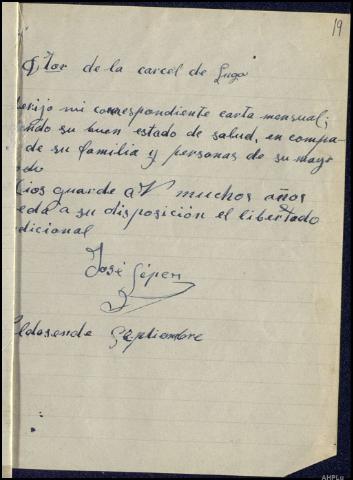 19
Dtor de la carcel de Lugo
mi correspondiente carta mensual;
ndo su buen estado de salud, en compa-
de su familia y personas de su mayo
Dios guarde a V muchos años
eda a su disposición el libertado
dicional
José
Septiembre
AHPLu